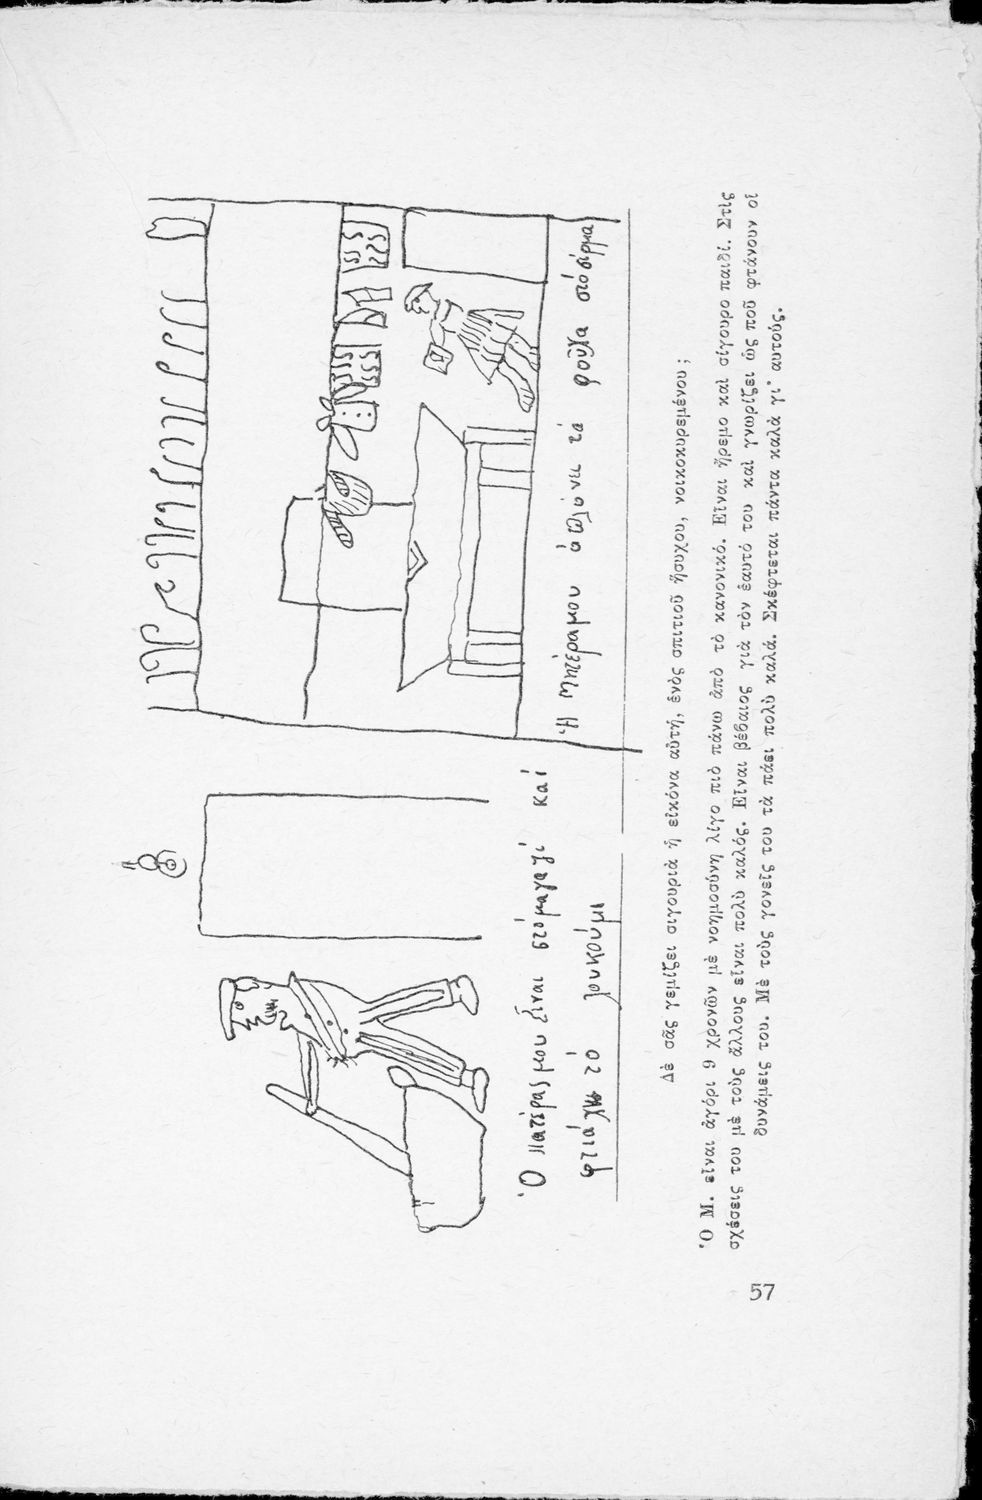 Ὁ πατέρας μου ξίναι στό μαγαζί καί
φτιάχνι τό λουκούμι
Ἡ μητέρα μου ἁπλόνι τά ροῦχα στό σύρμα
Δὲ σᾶς γεμίζει σιγουριὰ ἡ εἰκόνα αὐτή, ἑνὸς σπιτιοῦ ἥσυχου, νοικοκυρεμένου;
Ὁ Μ. εἶναι ἀγόρι 9 χρονῶν μὲ νοημοσύνη λίγο πιὸ πάνω ἀπὸ τὸ κανονικό. Εἶναι ἤρεμο καὶ σίγουρο παιδί. Στὶς
σχέσεις του μὲ τοὺς ἄλλους εἶναι πολὺ καλός. Εἶναι βέβαιος γιὰ τὸν ἑαυτό του καὶ γνωρίζει ὣς ποῦ φτάνουν οἱ
δυνάμεις του. Μὲ τοὺς γονεῖς του τὰ πάει πολὺ καλά. Σκέφτεται πάντα καλὰ γι' αὐτούς.
57